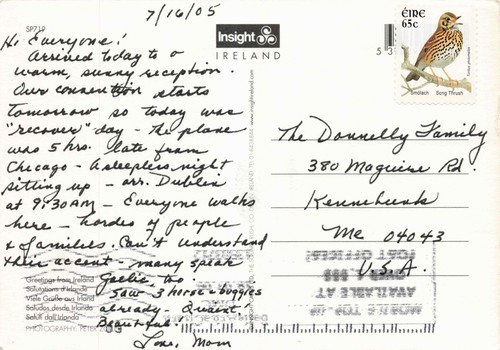 7/16/05
SP719
Hi Everyone!
Arrived today to a
warm, sunny reception.
Our convention starts
tomorrow so today was
"recover" day - the plane
was 5 hrs. late from
Chicago - A sleepless night
sitting up - arr. Dublin
at 9:30 AM - Everyone walks
here - hordes of people
& families. Can't understand
their accent - many speak
Gaelic, too.
Saw 3 horse & buggies
already - Quaint.
Beautiful!
Love, Mom
Greetings from Ireland
Salutations d'Irlande
Viele Grüße aus Irland
Saludos desde Irlanda
Saluti dall'Irlanda
PHOTOGRAPHY: PETER
Insight
IRELAND
www.insightireland.com
ÉIRE
65c
Smólach
Song Thrush
Turdus philomelos
The Donnelly Family
380 Maguire Rd.
Kennebunk
Me 04043
U.S.A.
POST OFFICES
AVAILABLE AT
MOBILE TOP-UP